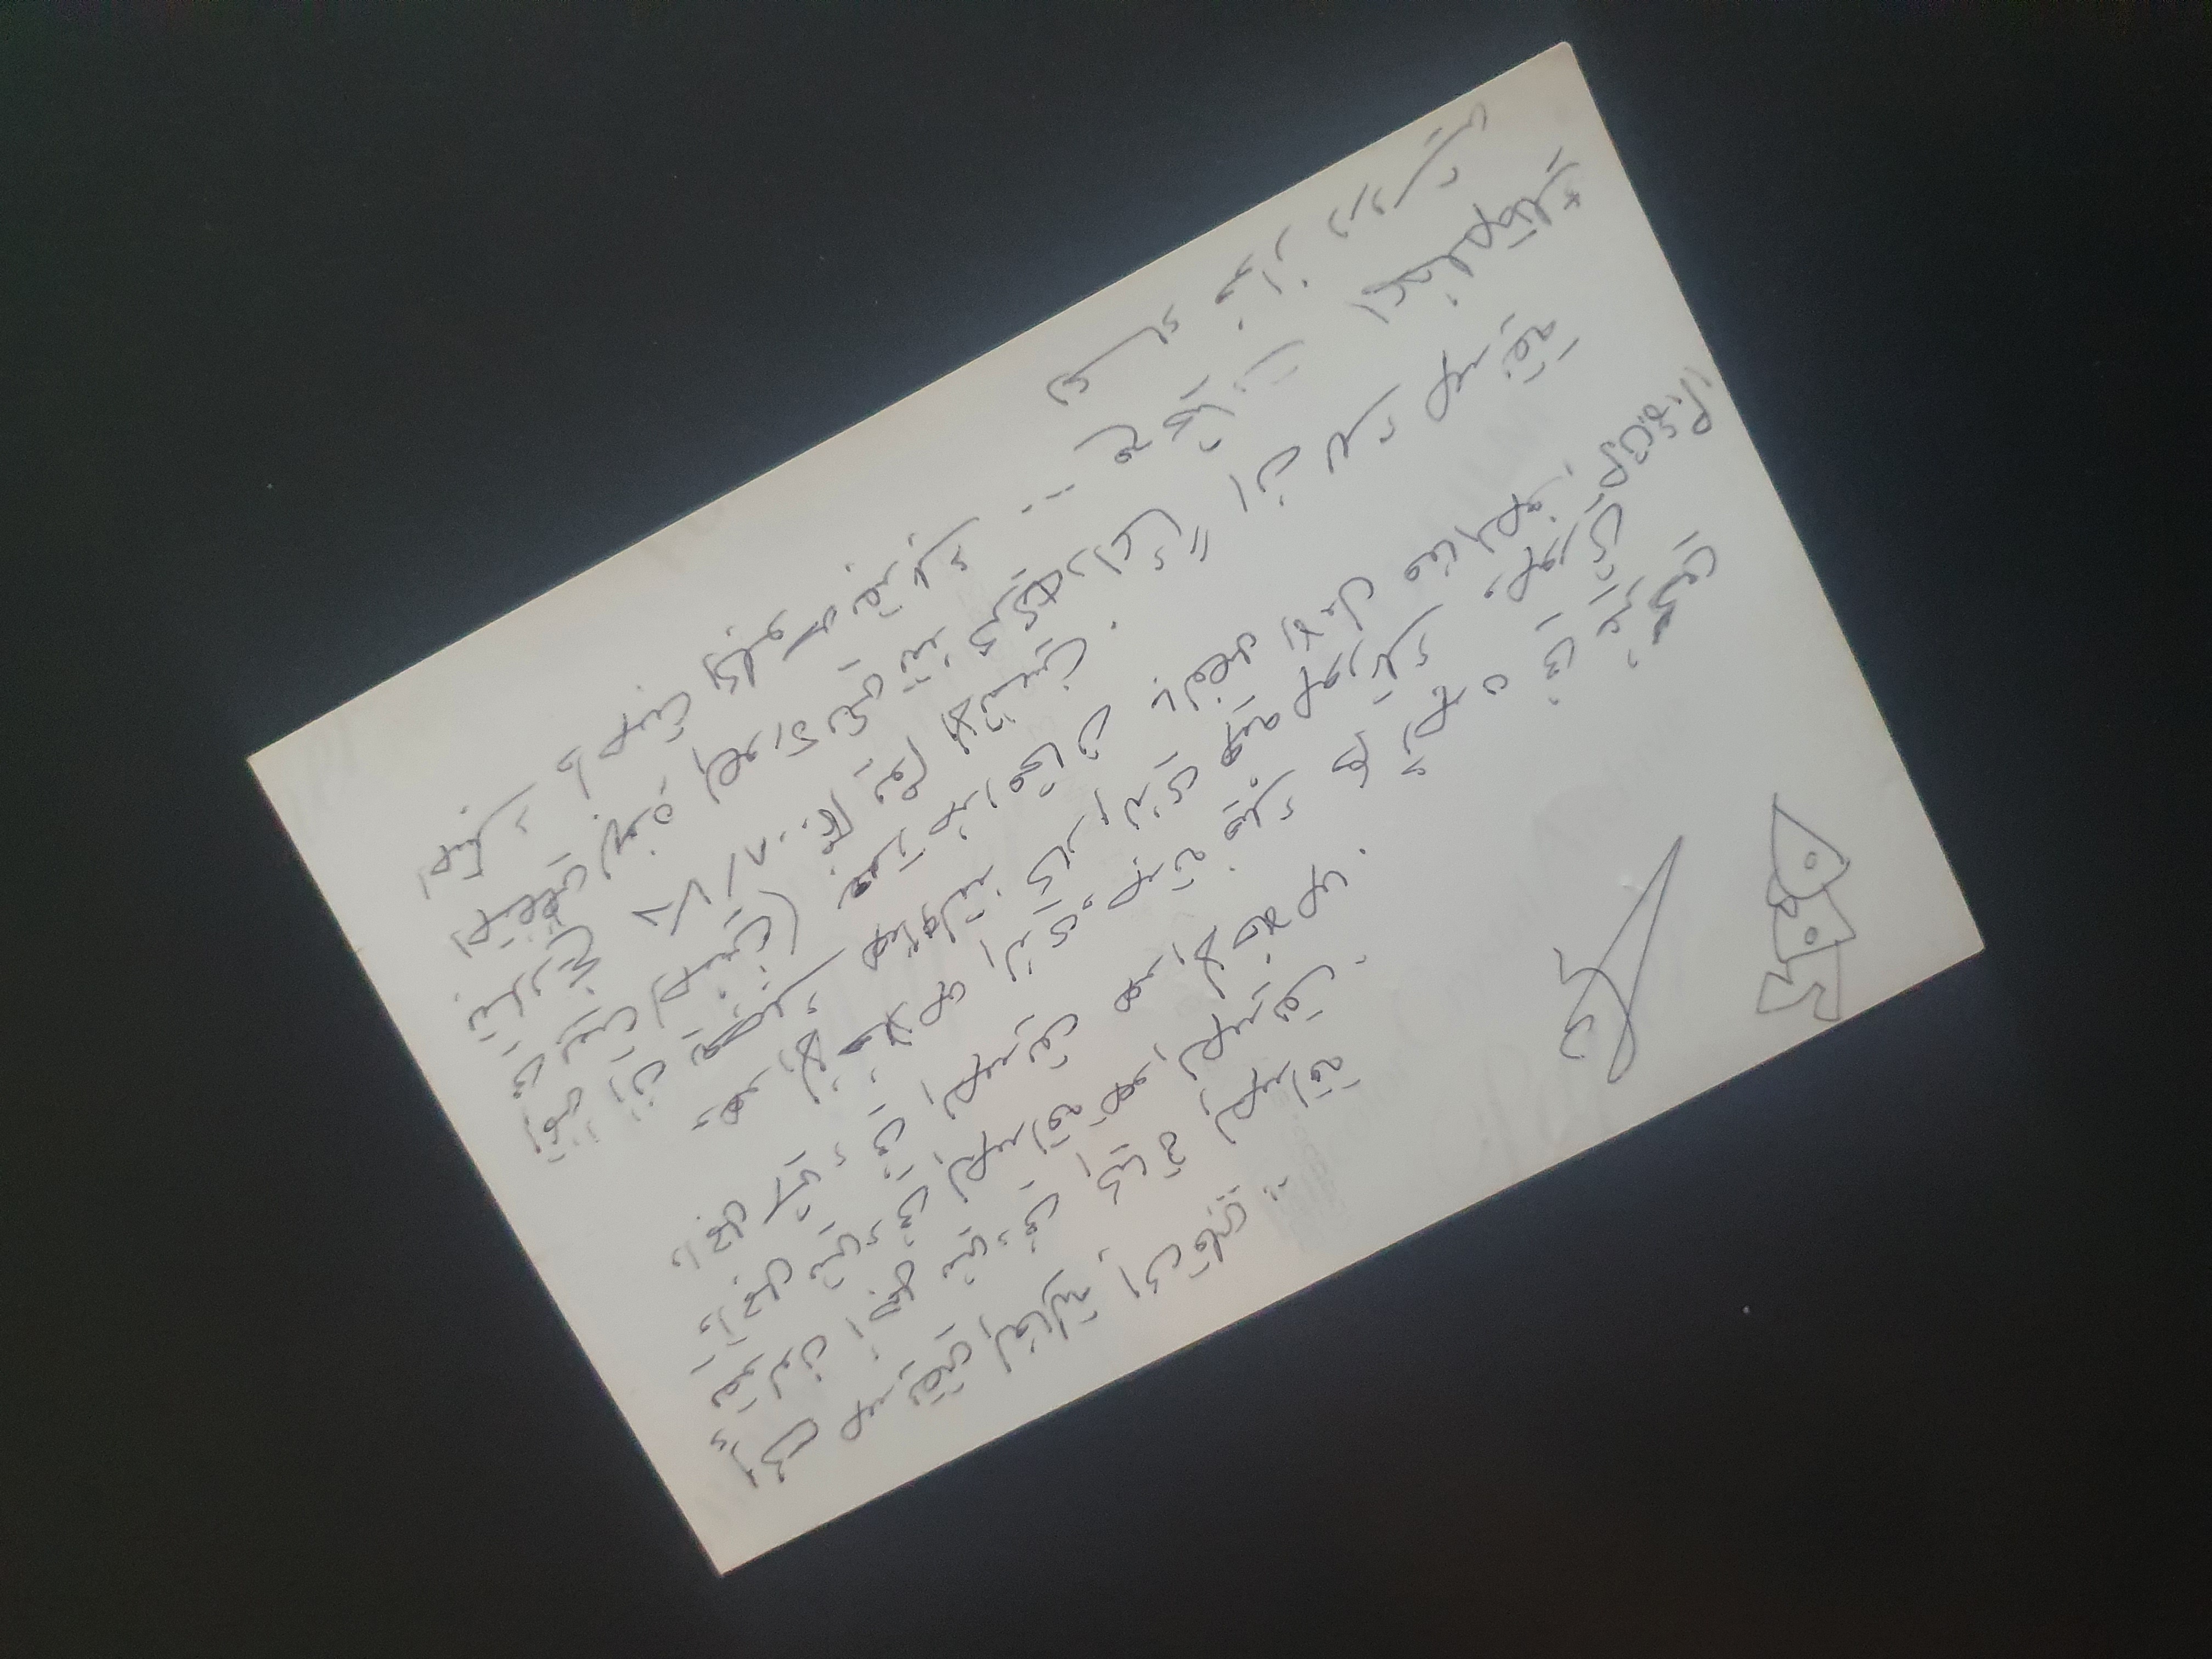 إلى صديقتي الغالية إلى قلبي :-
يقولون أجمل شيء في الحياة الصداقة
وأجمل شيء في الصداقة هو الصديق.
واجمل شيء في الصديق هو الاخلاص.
وهو الأخلاص الذي وجدته فيك ولم أجده في غيركي
اتمنى أن يعجبك هذا التذكار الذي فيه صورتك وصورتي
في بيت (حنين) بعد آخر امتحان بالفصل الاول من الصف
بتاريخ ٢٠٠٨/ يوم الاثنين.
احتفظي بهذهِ الصورة لكي تتذكري دائماً ان لك صديقة
احبتك واحبت الجلوس بقربك ... مع تحيات المخلصةلكِ
دعاء فواز درويش